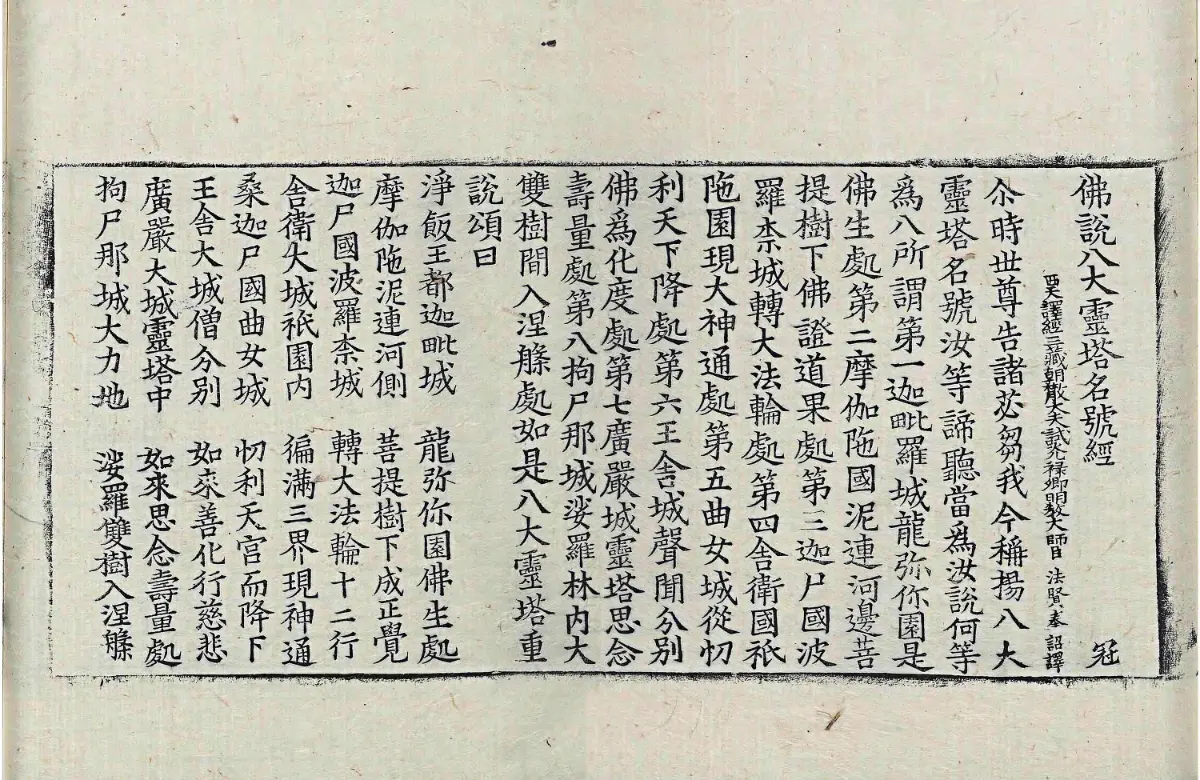 佛說八大靈塔名號經 冠
西天譯經三藏朝散大夫試光祿卿明教大師臣 法賢奉 詔譯
尒時世尊告諸苾芻我今稱揚八大
靈塔名號汝等諦聽當為汝說何等
為八所謂第一迦毗羅城龍弥你園是
佛生處第二摩伽陁國泥連河邊菩
提樹下佛證道果處第三迦尸國波
羅柰城轉大法輪處第四舍衛國祇
陁園現大神通處第五曲女城從忉
利天下降處第六王舍城聲聞分別
佛為化度處第七廣嚴城靈塔思念
壽量處第八拘尸那城娑羅林內大
雙樹間入涅槃處如是八大靈塔重
說頌曰
淨飯王都迦毗城 龍弥你園佛生處
摩伽陁泥連河側 菩提樹下成正覺
迦尸國波羅柰城 轉大法輪十二行
舍衛大城祇園內 徧滿三界現神通
桑迦尸國曲女城 忉利天宮而降下
王舍大城僧分別 如來善化行慈悲
廣嚴大城靈塔中 如來思念壽量處
拘尸那城大力地 娑羅雙樹入涅槃